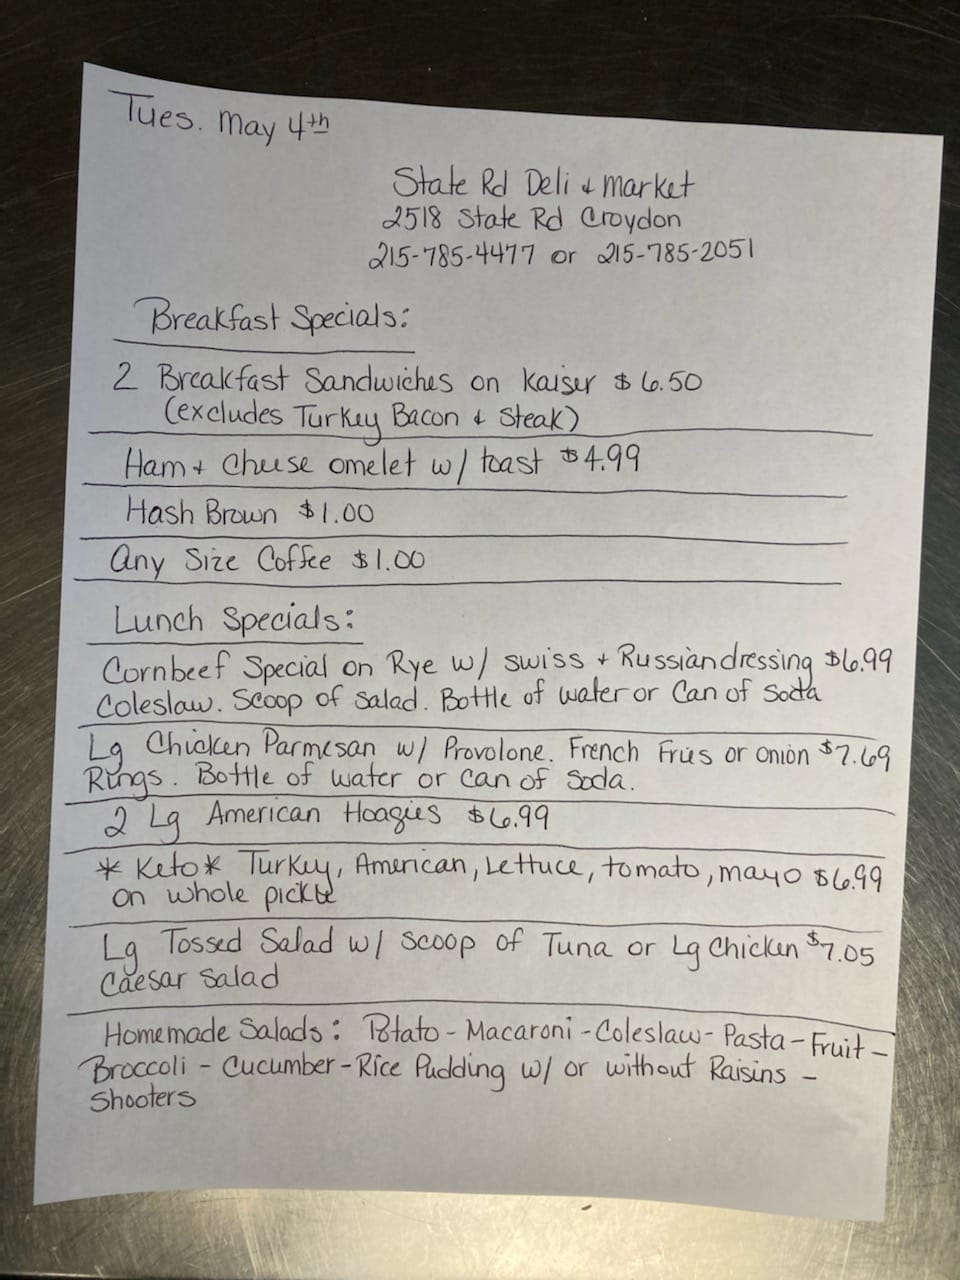 Tues. May 4th
State Rd Deli & Market
2518 State Rd Croydon
215-785-4477 or 215-785-2051
Breakfast Specials:
2 Breakfast Sandwiches on Kaiser $6.50
(excludes Turkey Bacon & Steak)
Ham & Cheese omelet w/ toast $4.99
Hash Brown $1.00
Any Size Coffee $1.00
Lunch Specials:
Cornbeef Special on Rye w/ swiss & Russian dressing $6.99
Coleslaw. Scoop of Salad. Bottle of water or Can of Soda
Lg Chicken Parmesan w/ Provolone. French Fries or onion $7.69
Rings. Bottle of water or Can of Soda.
2 Lg American Hoagies $6.99
* Keto * Turkey, American, Lettuce, tomato, mayo $6.99
on whole pickle
Lg Tossed Salad w/ Scoop of Tuna or Lg Chicken $7.05
Caesar Salad
Homemade Salads: Potato - Macaroni - Coleslaw - Pasta - Fruit -
Broccoli - Cucumber - Rice Pudding w/ or without Raisins -
Shooters